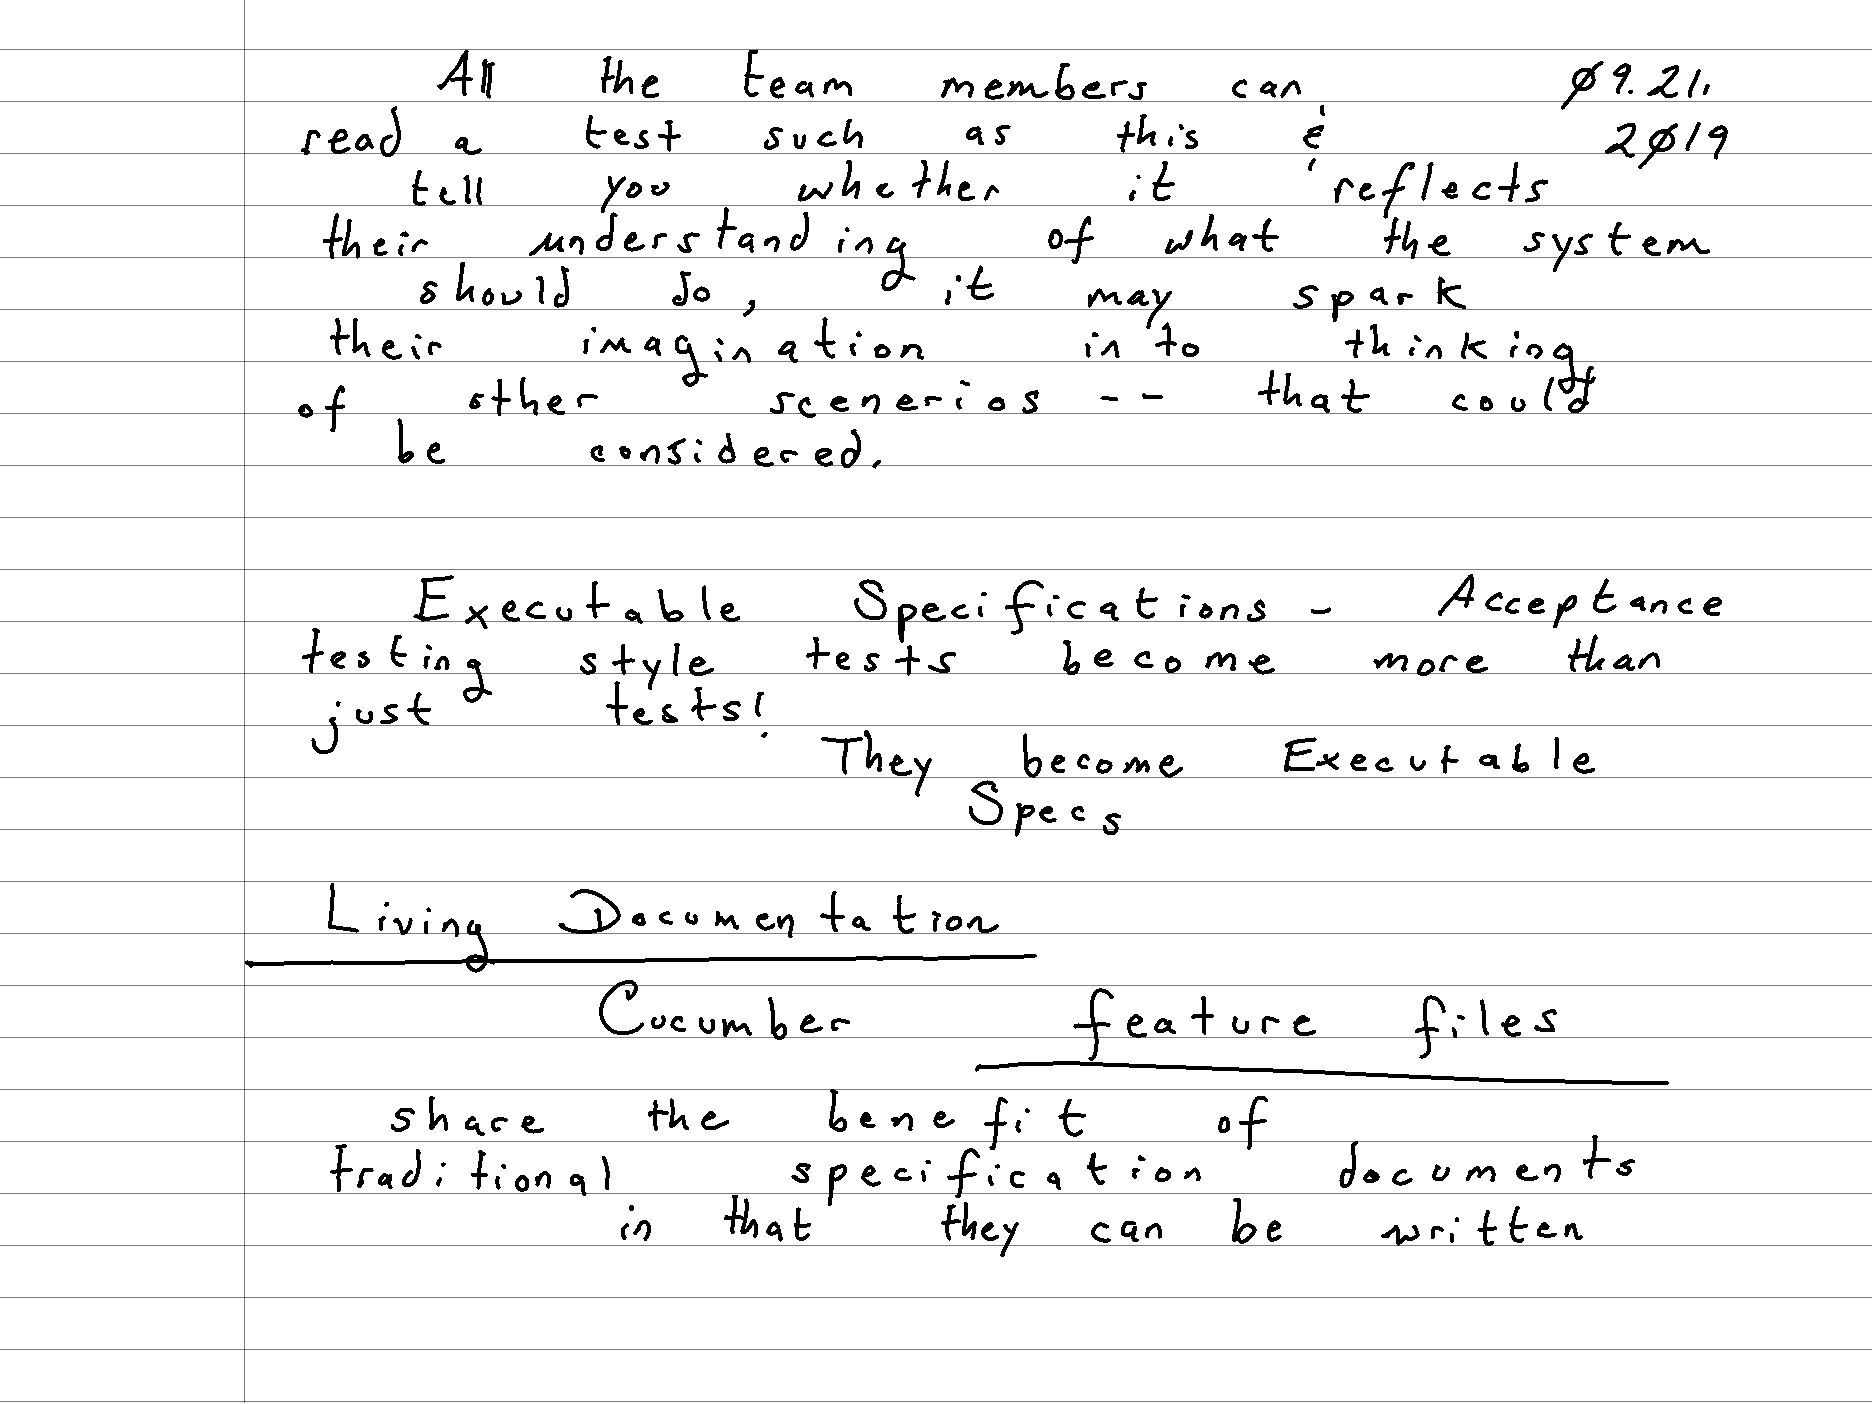 All the team members can Ø9.21.
read a test such as this & 2Ø19
tell you whether it reflects
their understanding of what the system
should do, it may spark
their imagination in to thinking
of other scenerios -- that could
be considered.
Executable Specifications - Acceptance
testing style tests become more than
just tests!
They become Executable
Specs
Living Documentation
Cucumber feature files
share the benefit of
traditional specification documents
in that they can be written